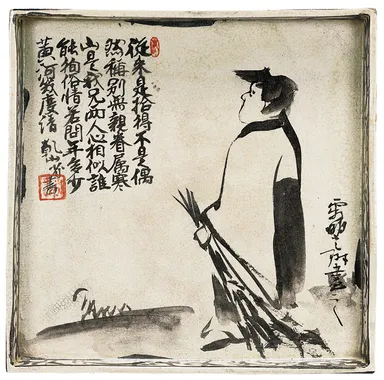 從來是拾得不是偶
然稱別無親眷屬寒
山是我兄兩人心相似誰
能徇俗情若問年多少
黃河幾度清 乾山省書
寂明光琳畫之